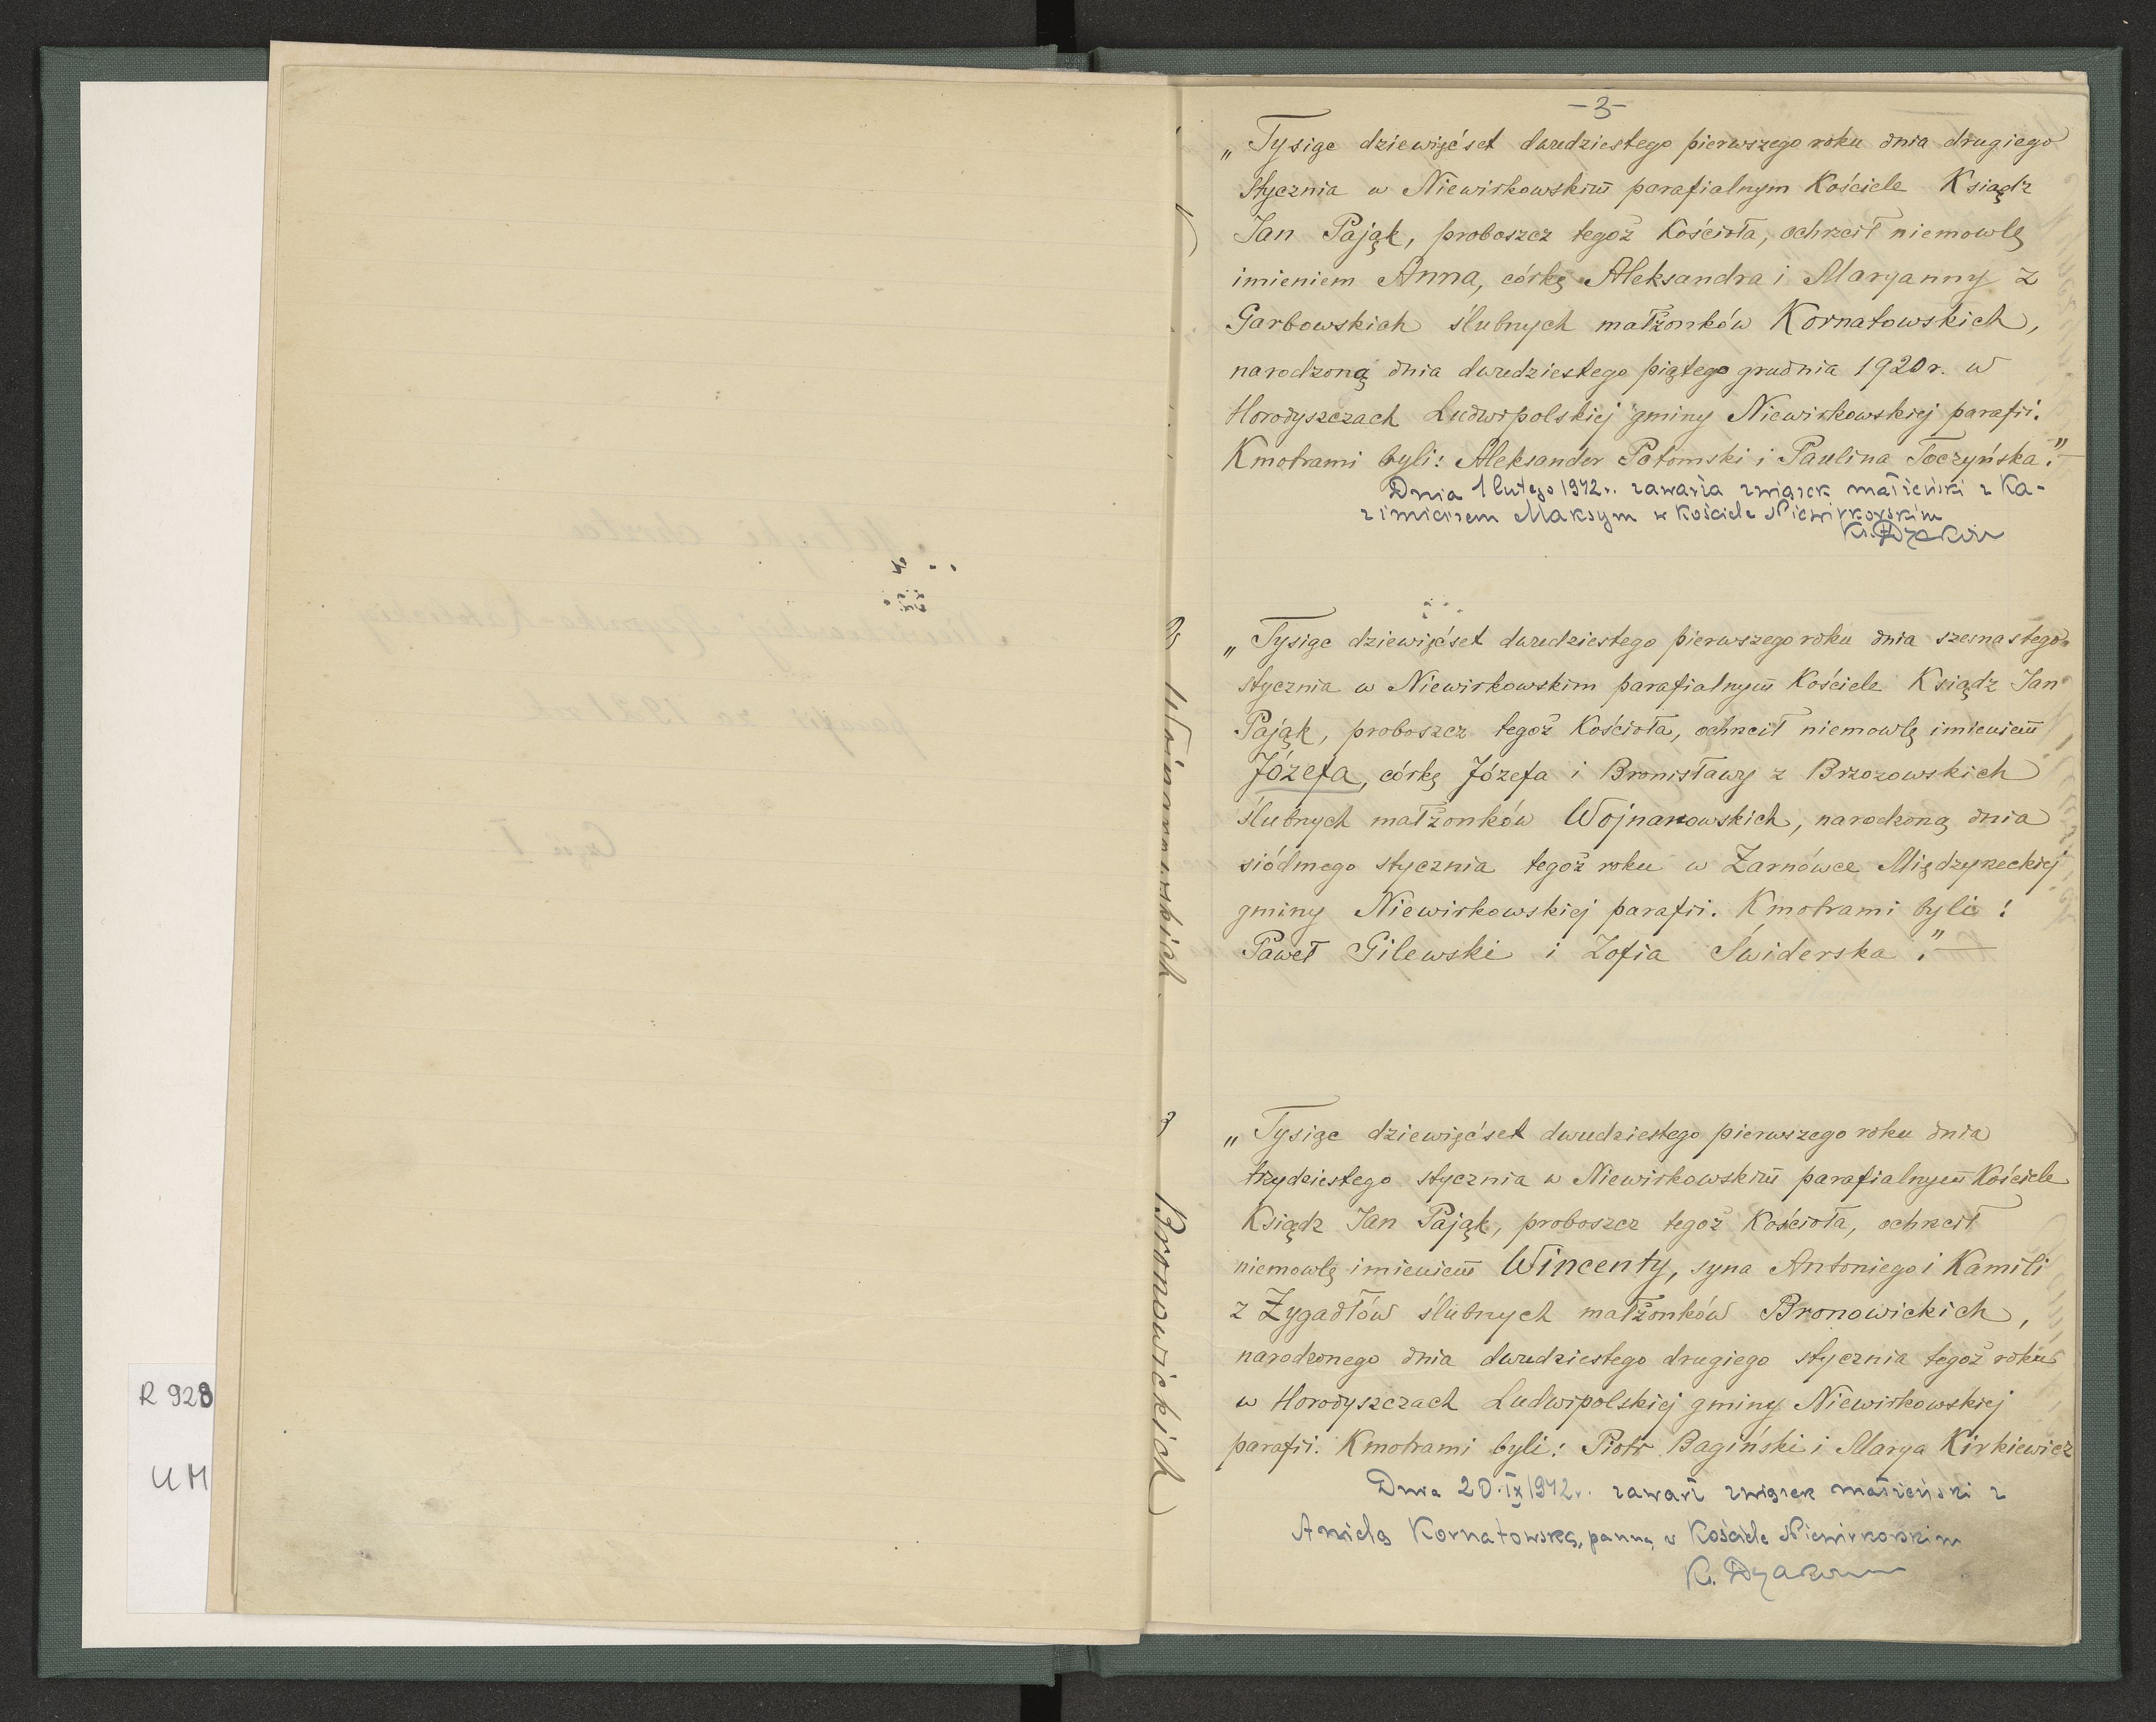 R 928
UM
-3-
1
„Tysiąc dziewięćset dwudziestego pierwszego roku dnia drugiego
stycznia w Niewirkowskim̄ parafialnym Kościele Ksiądz
Jan Pająk, proboszcz tegoż Kościoła, ochrzcił niemowlę
imieniem Anna, córkę Aleksandra i Maryanny z
Garbowskich ślubnych małżonków Kornatowskich,
narodzoną dnia dwudziestego piątego grudnia 1920 r. w
Horodyszczach Ludwipolskiej gminy Niewirkowskiej parafii.
Kmotrami byli: Aleksander Potomski i Paulina Toczyńska."—
Dnia 1 lutego 1942 r. zawarła związek małżeński z Ka-
zimierzem Maksym w kościele Niewirkowskim
Ks.
2 Wojnarowskich
„Tysiąc dziewięćset dwudziestego pierwszego roku dnia szesnastego
stycznia w Niewirkowskim parafialnym̄ Kościele Ksiądz Jan
Pająk, proboszcz tegoż Kościoła, ochrzcił niemowlę imieniem̄
Józefa, córkę Józefa i Bronisławy z Brzozowskich
ślubnych małżonków Wojnarowskich, narodzoną dnia
siódmego stycznia tegoż roku w Żarnówce Międzyrzeckiej
gminy Niewirkowskiej parafii. Kmotrami byli:
Paweł Gilewski i Zofia Świderska."—
3 Bronowickich
„Tysiąc dziewięćset dwudziestego pierwszego roku dnia
trzydziestego stycznia w Niewirkowskim̄ parafialnym̄ Kościele
Ksiądz Jan Pająk, proboszcz tegoż Kościoła, ochrzcił
niemowlę imieniem̄ Wincenty, syna Antoniego i Kamili
z Zygadłów ślubnych małżonków Bronowickich,
narodzonego dnia dwudziestego drugiego stycznia tegoż roku
w Horodyszczach Ludwipolskiej gminy Niewirkowskiej
parafii. Kmotrami byli: Piotr Bagiński i Marya Kirkiewicz
Dnia 20.IX 1942 r. zawarł związek małżeński z
Anielą Kornatowską, panną w Kościele Niewirkowskim
Ks.